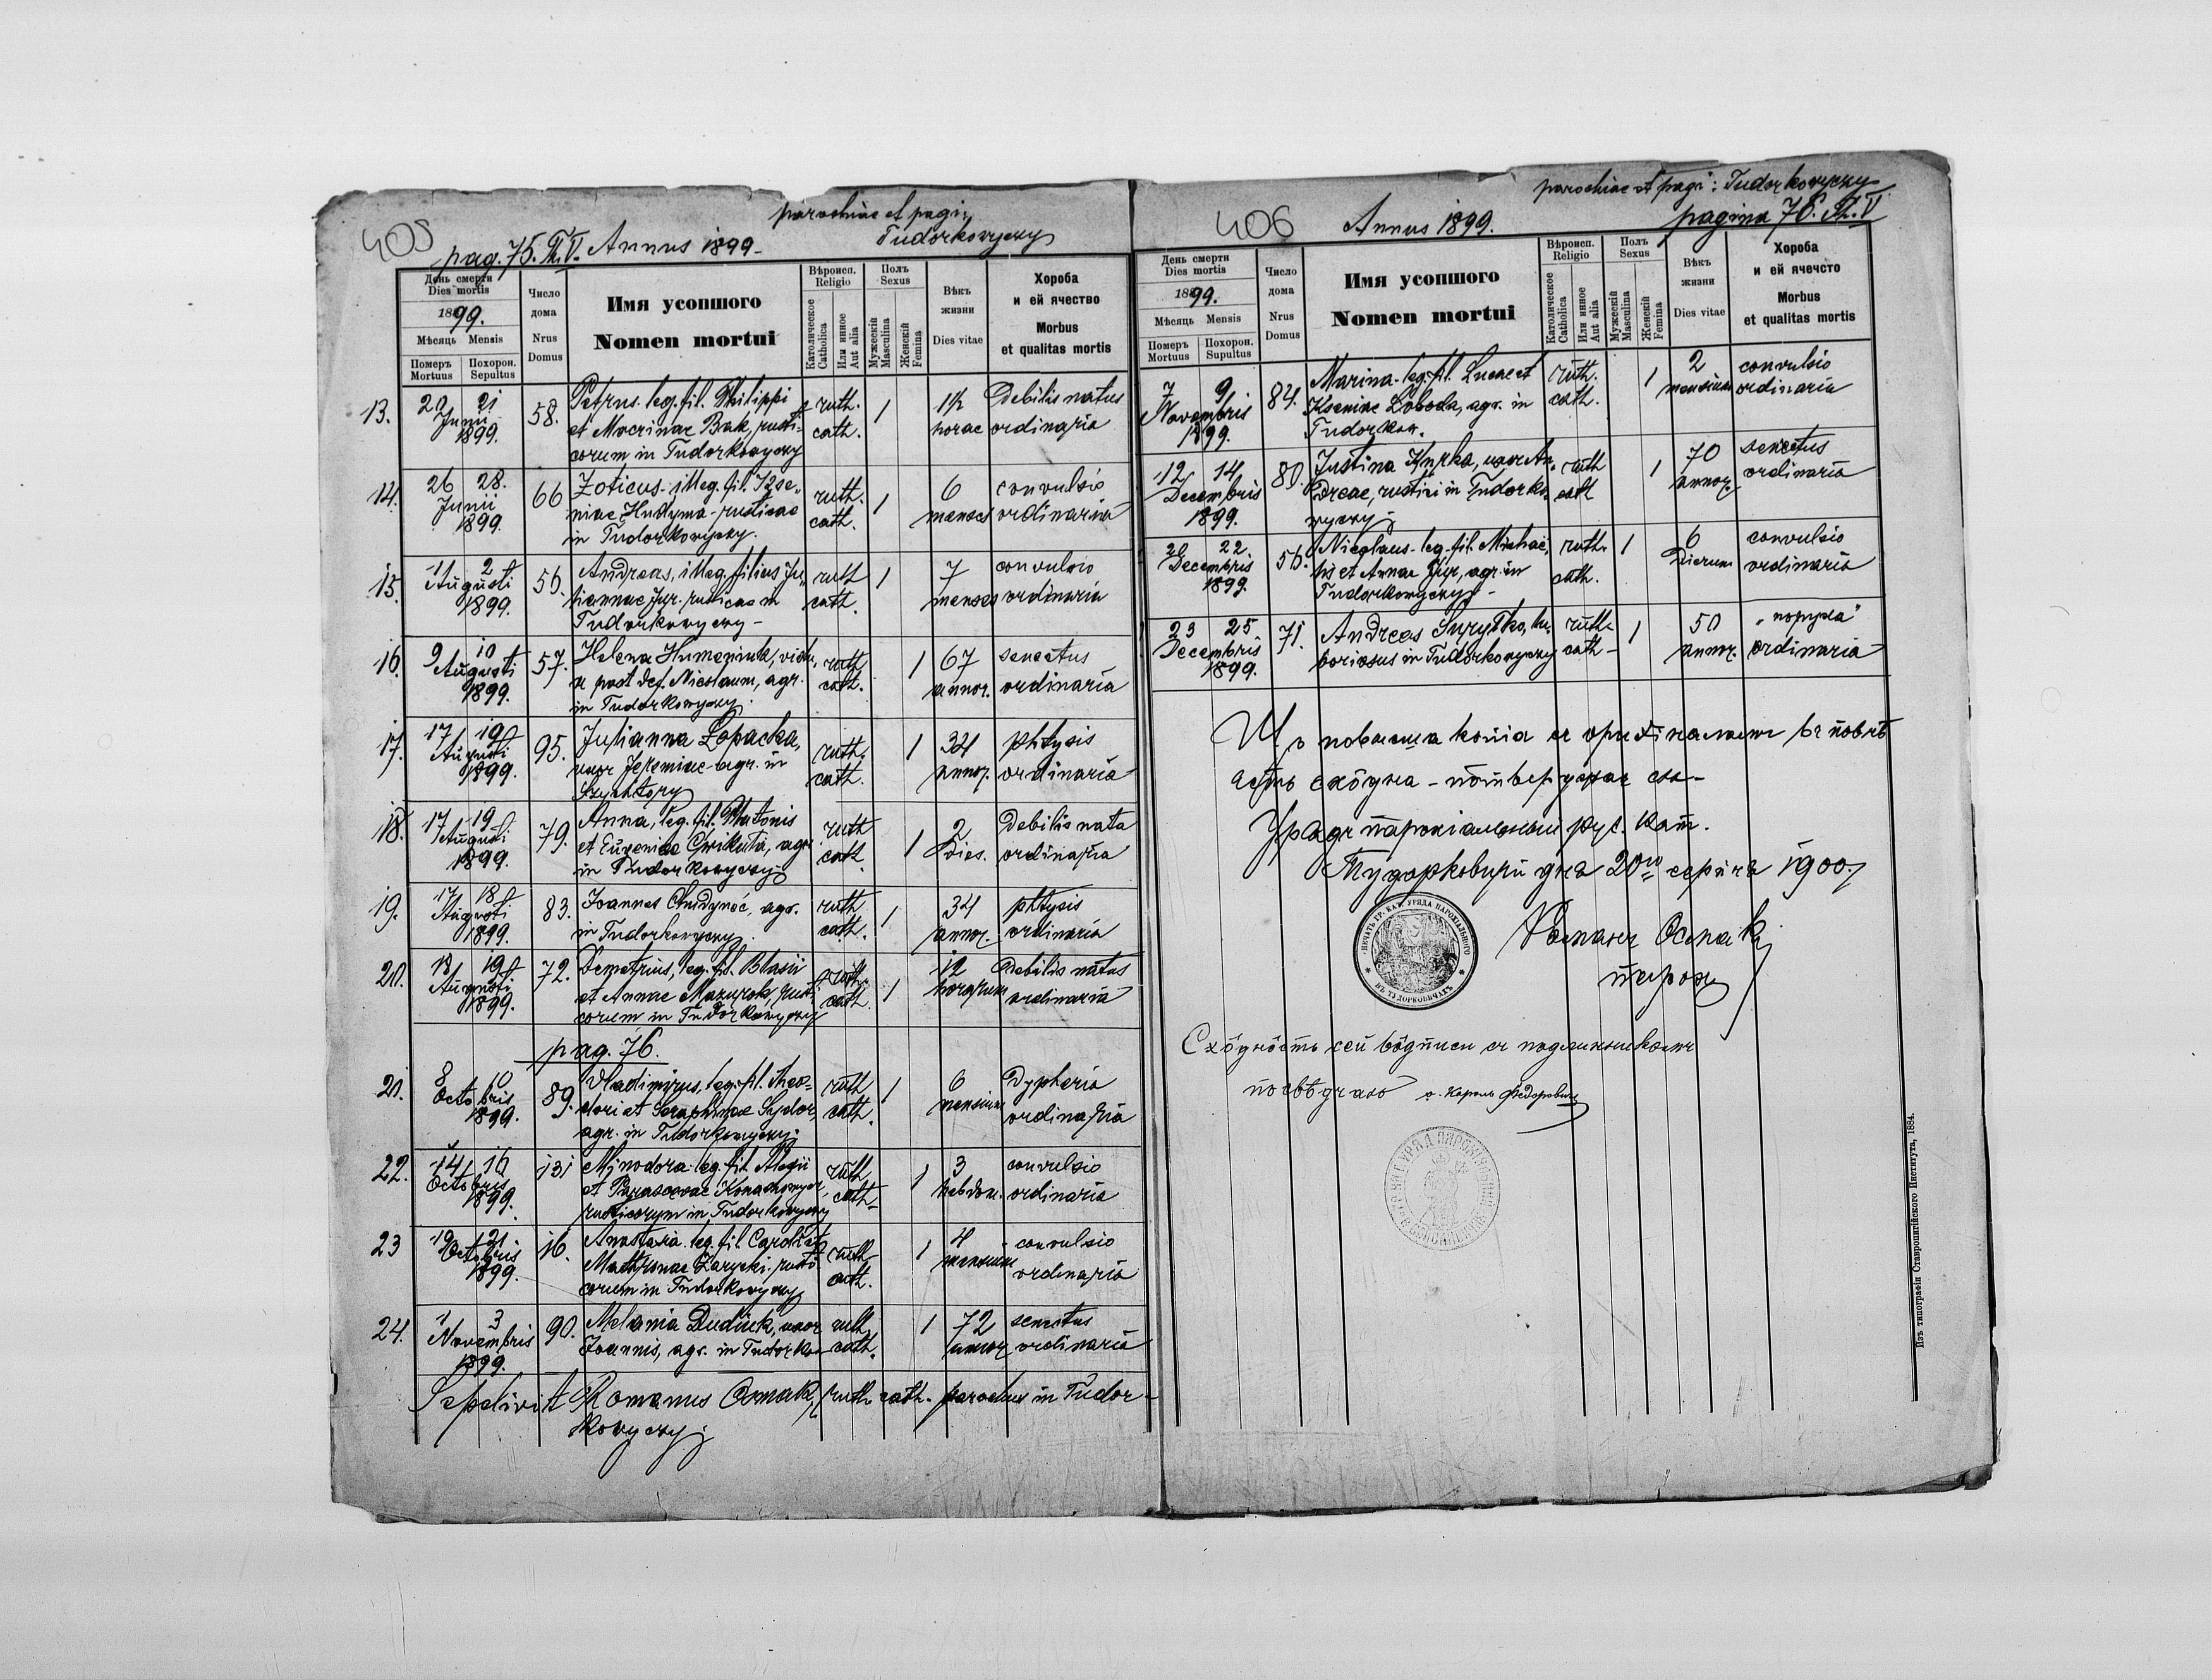 405
parochiae et pagi:
Tudorkovyczy
pag. 75. T. V. Annus 1899
День смерти
Dies mortis
1899.
Мѣсяць Mensis
Померъ Mortuus
Похорон. Sepultus
Число дома
Nrus Domus
Имя усопшого
Nomen mortui
Вѣроисп.
Religio
Католическое Catholica
Или инное Aut alia
Полъ
Sexus
Мужескій Masculina
Женскій Femina
Вѣкъ жизни
Dies vitae
Хороба
и ей ячество
Morbus
et qualitas mortis
13. 20 21 Junii 1899. 58. Petrus leg. fil. Philippi ruth. cath. 1 1½ horae Debilis natus ordinaria
et Macrinae Bak, rusti-
corum in Tudorkovyczy
14. 26 28. Junii 1899. 66 Zoticus illeg. fil. ruth. cath. 1 6 menses convulsio ordinaria
rusticae
in Tudorkovyczy.
15. 1 2 Augusti 1899. 56. Andreas, illeg. filius Ju- ruth cath. 1 7 menses convulsio ordinaria
liannae Jur. rusticae in
Tudorkovyczy -
16. 9 10 Augusti 1899. 57. Helena Humeniuk, vidu- ruth cath. 1 67 annor. senectus ordinaria
a post def. Nicolaum, agr.
in Tudorkovyczy.
17. 17 19 Augusti 1899. 95. Julianna Łopacka, ruth. cath. 1 34 annor. phtysis ordinaria
uxor Jeremiae agr. in
18. 17 19 Augusti 1899. 79. Anna, leg. fil. Platonis ruth cath. 1 2 dies. Debilis nata ordinaria
et Eugeniae agr.
in Tudorkovyczy
19. 17 18 Augusti 1899. 83. Joannes agr. ruth. cath. 1 34 annor. phtysis ordinaria
in Tudorkovyczy.
20. 18 19 Augusti 1899. 72. Demetrius, leg. fil. Blasii ruth. cath. 1 12 horarum Debilis natus ordinaria
et Annae Mazurok, rusti-
corum in Tudorkovyczy
pag. 76.
21. 8 10 Octobris 1899. 89. Vladimirus, leg. fil. Theo- ruth cath. 1 6 mensium Dypheria ordinaria
dori et Seraphinae Sydor,
agr. in Tudorkovyczy.
22. 14 16 Octobris 1899. 131 Minodora leg. fil. ruth cath. 1 3 hebdom. convulsio ordinaria
et Parascevae
rusticorum in Tudorkovyczy
23 19 21. Octobris 1899. 16. Anastasia leg. fil. Caroli et ruth cath. 1 4 mensium convulsio ordinaria
Matronae Zarycki rusti-
corum in Tudorkovyczy
24. 1 3 Novembris 1899. 90. Melania Dudiuk, uxor ruth cath. 1 72 annor senectus ordinaria
Joannis, agr. in Tudorkov
Sepelivit Romanus Osmak, ruth. cath. parochus in Tudor-
kovyczy.
parochiae et pagi: Tudorkovyczy
406 Annus 1899. pagina 76. T. V
День смерти
Dies mortis
1899.
Мѣсяць Mensis
Померъ Mortuus
Похорон. Supultus
Число дома
Nrus Domus
Имя усопшого
Nomen mortui
Вѣроисп.
Religio
Католическое Catholica
Или инное Aut alia
Полъ
Sexus
Мужескій Masculina
Женскій Femina
Вѣкъ жизни
Dies vitae
Хороба
и ей ячечсто
Morbus
et qualitas mortis
7 9 Novembris 1899. 84. Marina leg. fil. Lucae et ruth. cath. 1 2 mensium convulsio ordinaria
Kseniae Łoboda, agr. in
Tudorkov.
12 14 Decembris 1899. 80. Justina uxor An- ruth cath 1 70 annor. senectus ordinaria
dreae, rustici in Tudorko-
vyczy.
20 22. Decembris 1899. 56. Nicolaus leg. fil. Michae- ruth. cath. 1 6 Dierum convulsio ordinaria
lis et Annae Jur, agr. in
Tudorkovyczy -
23 25 Decembris 1899. 71. Andreas la- ruth cath - 1 50 annor. „порука" ordinaria
boriosus in Tudorkovyczy
Що повысша копія съ оригіналомъ въ повнѣ
есть сходна - потверджае ся -
Урядъ парохіальный рус. кат.
Тудорковичи дня 20го серпня 1900.
ПЕЧАТЬ ГР. КАТ. УРЯДА ПАРОХІАЛЬНОГО
ВЪ ТУДОРКОВИЧАХЪ
Романъ Осмак
парох
Сходность сей водписи съ подлинникомъ
посвѣдчаю о. Кароль Федорович
Изъ типографіи Ставропигійского Института, 1884.